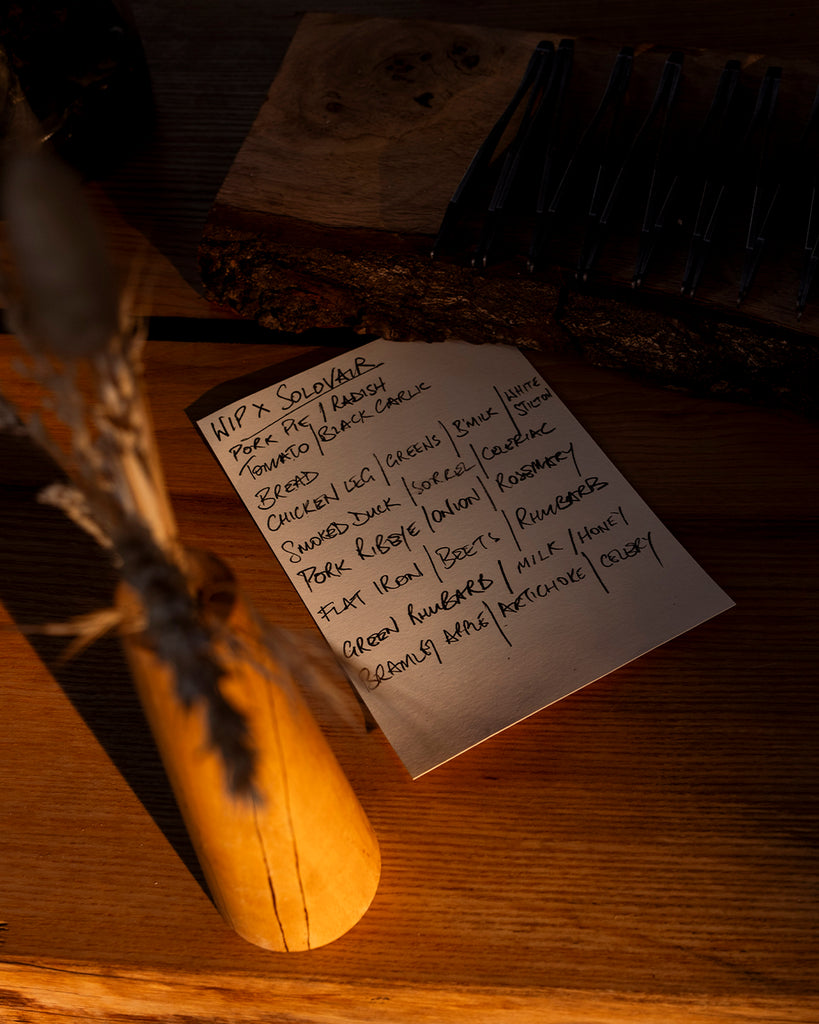 WIP X SOLOVAIR
PORK PIE / RADISH
TOMATO / BLACK GARLIC
BREAD
CHICKEN LEG / GREENS / B'MILK / WHITE STILTON
SMOKED DUCK / SORREL / CELERIAC
PORK RIBEYE / ONION / ROSEMARY
FLAT IRON / BEETS / RHUBARB
GREEN RHUBARB / MILK / HONEY
BRAMLEY APPLE / ARTICHOKE / CELERY